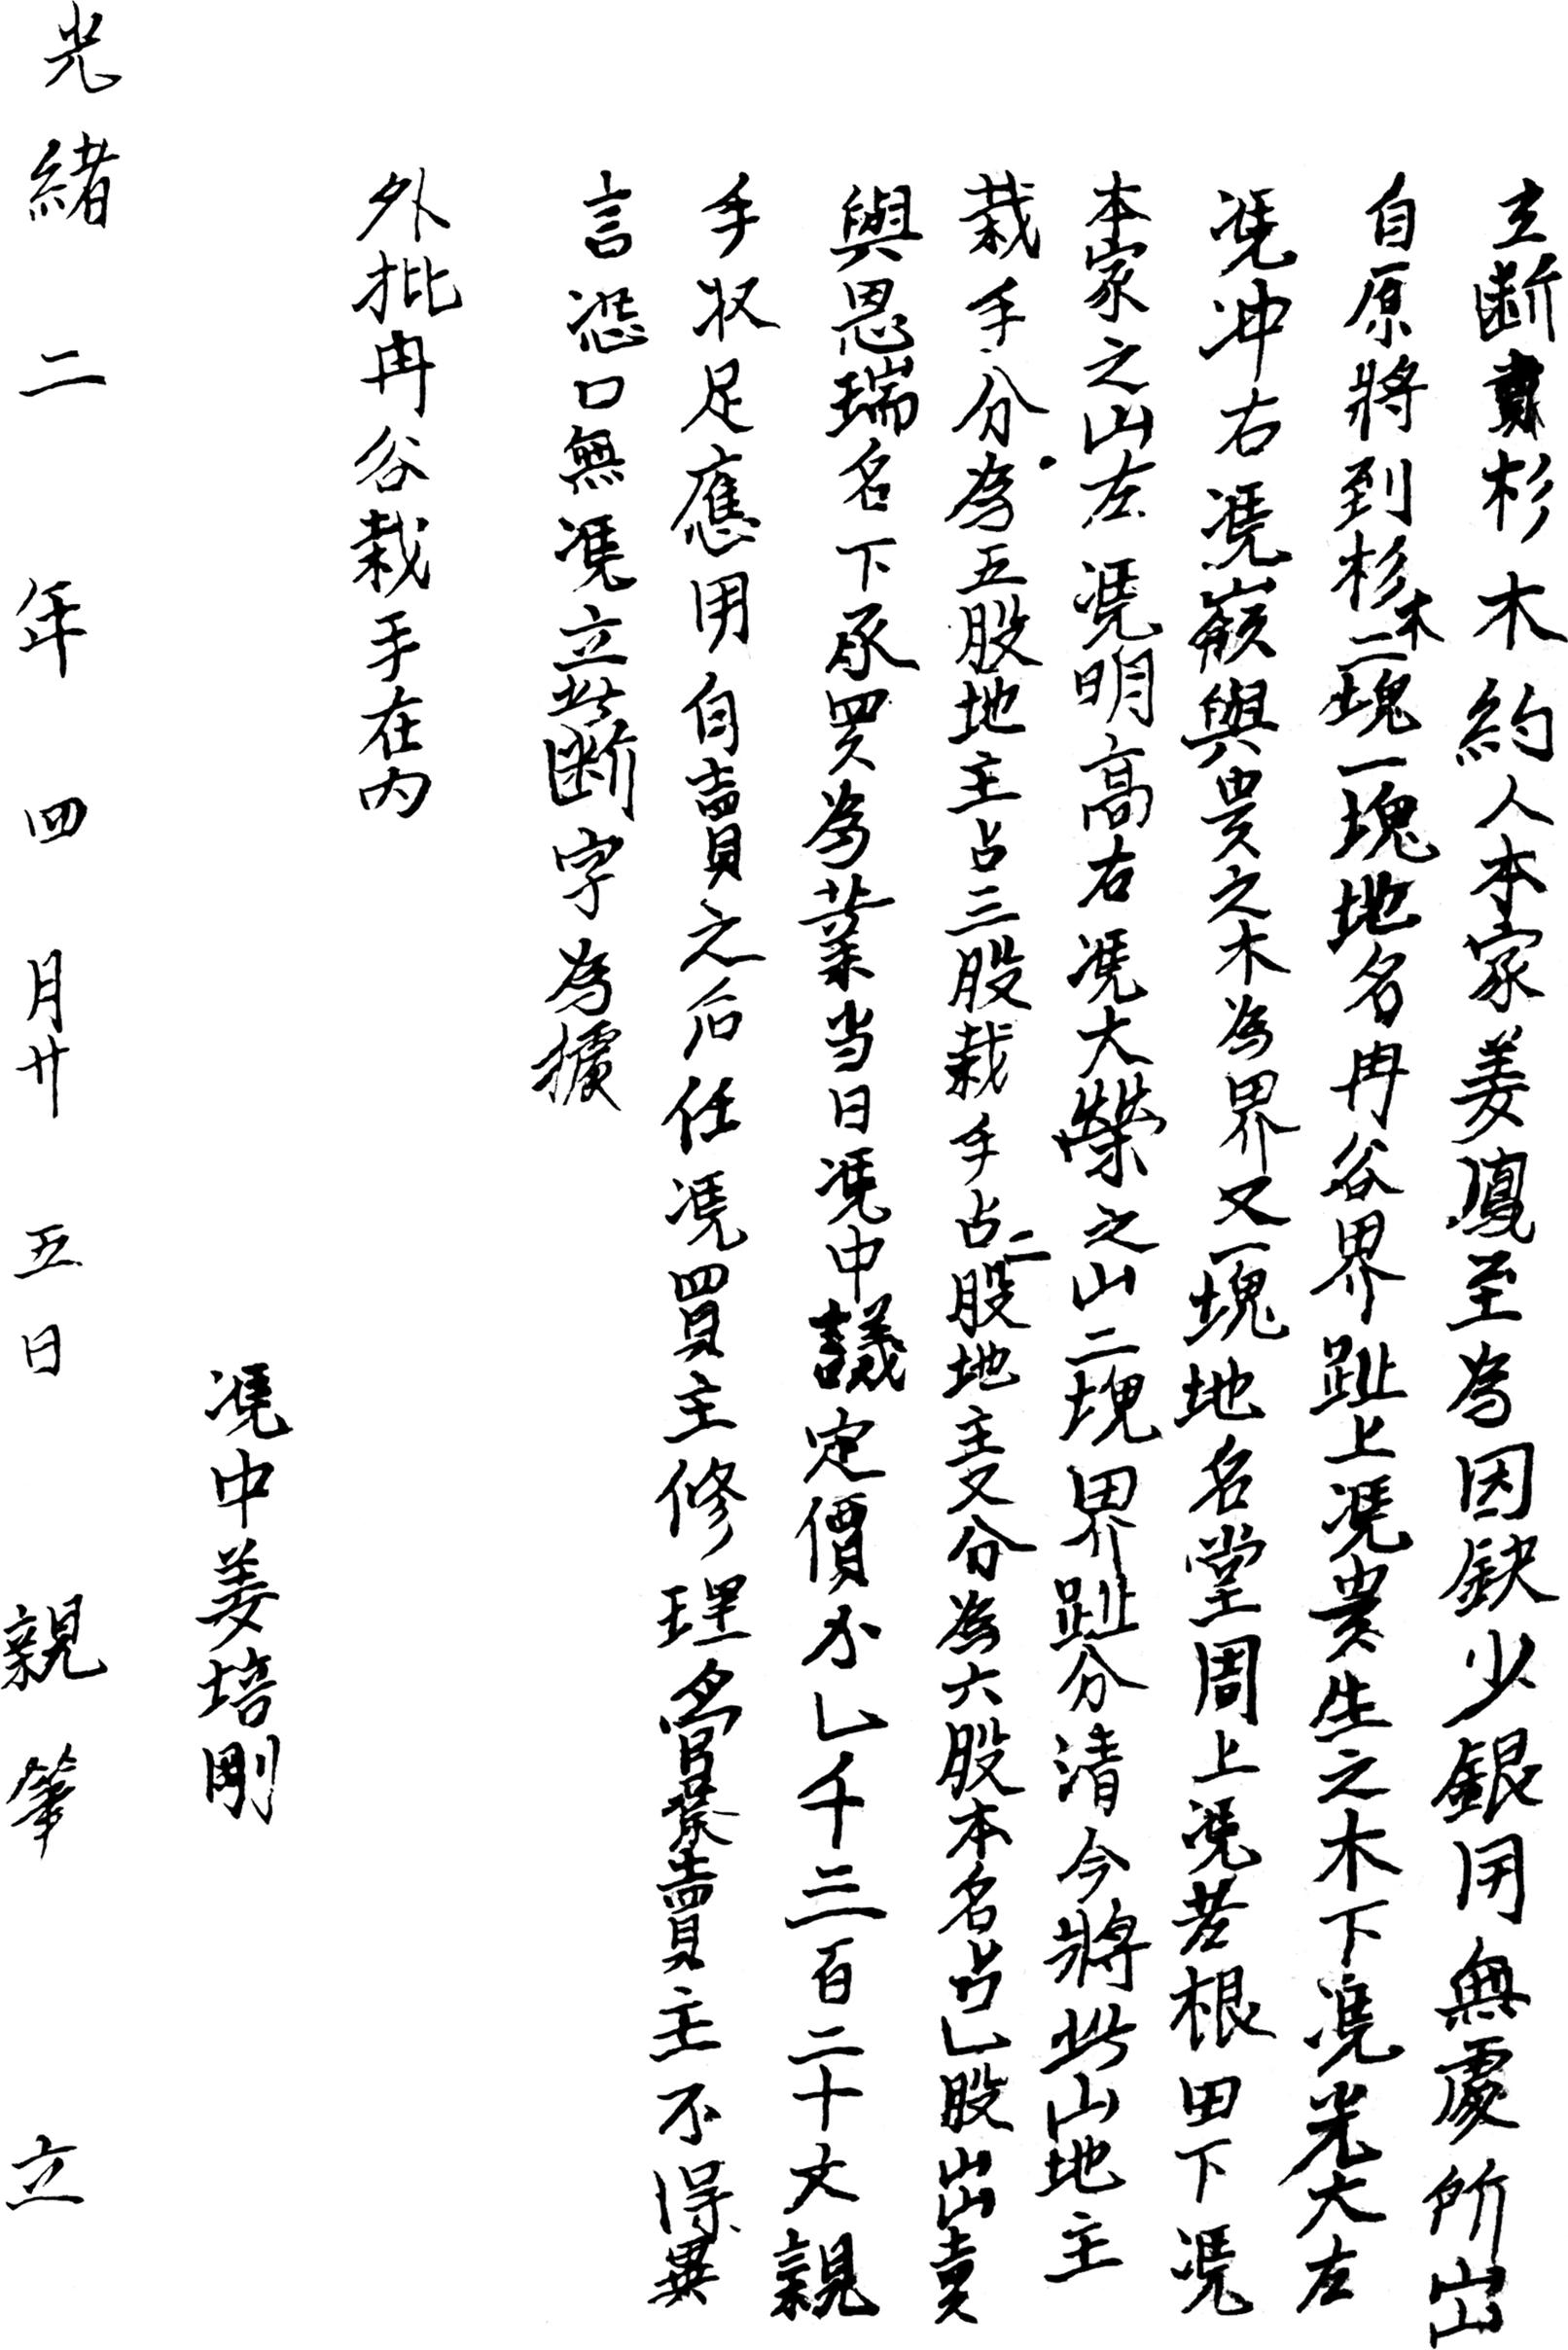 立斷賣杉木約人本家姜鳳至為因缺少銀用無處所出
自原將到杉木二塊一塊地名冉谷界趾上凭貴生之木下凭光大左
凭冲右凭嶺與貴之木為界又一塊地名堂周上凭若根田下凭
本家之山左凭明高右凭大榮之山二塊界趾分清今將此山地主
栽手分為五股地主占三股栽手占二股地主又分為六股本名占乙股出賣
與恩瑞名下承買為業当日凭中議定價不乙千三百二十文親
手收足應用自賣之后任凭買主修理為業賣主不得異
言恐口無凭立此斷字為據
外批冉谷栽手在内
凭中姜培剛
光緒二年四月廿五日 親筆 立